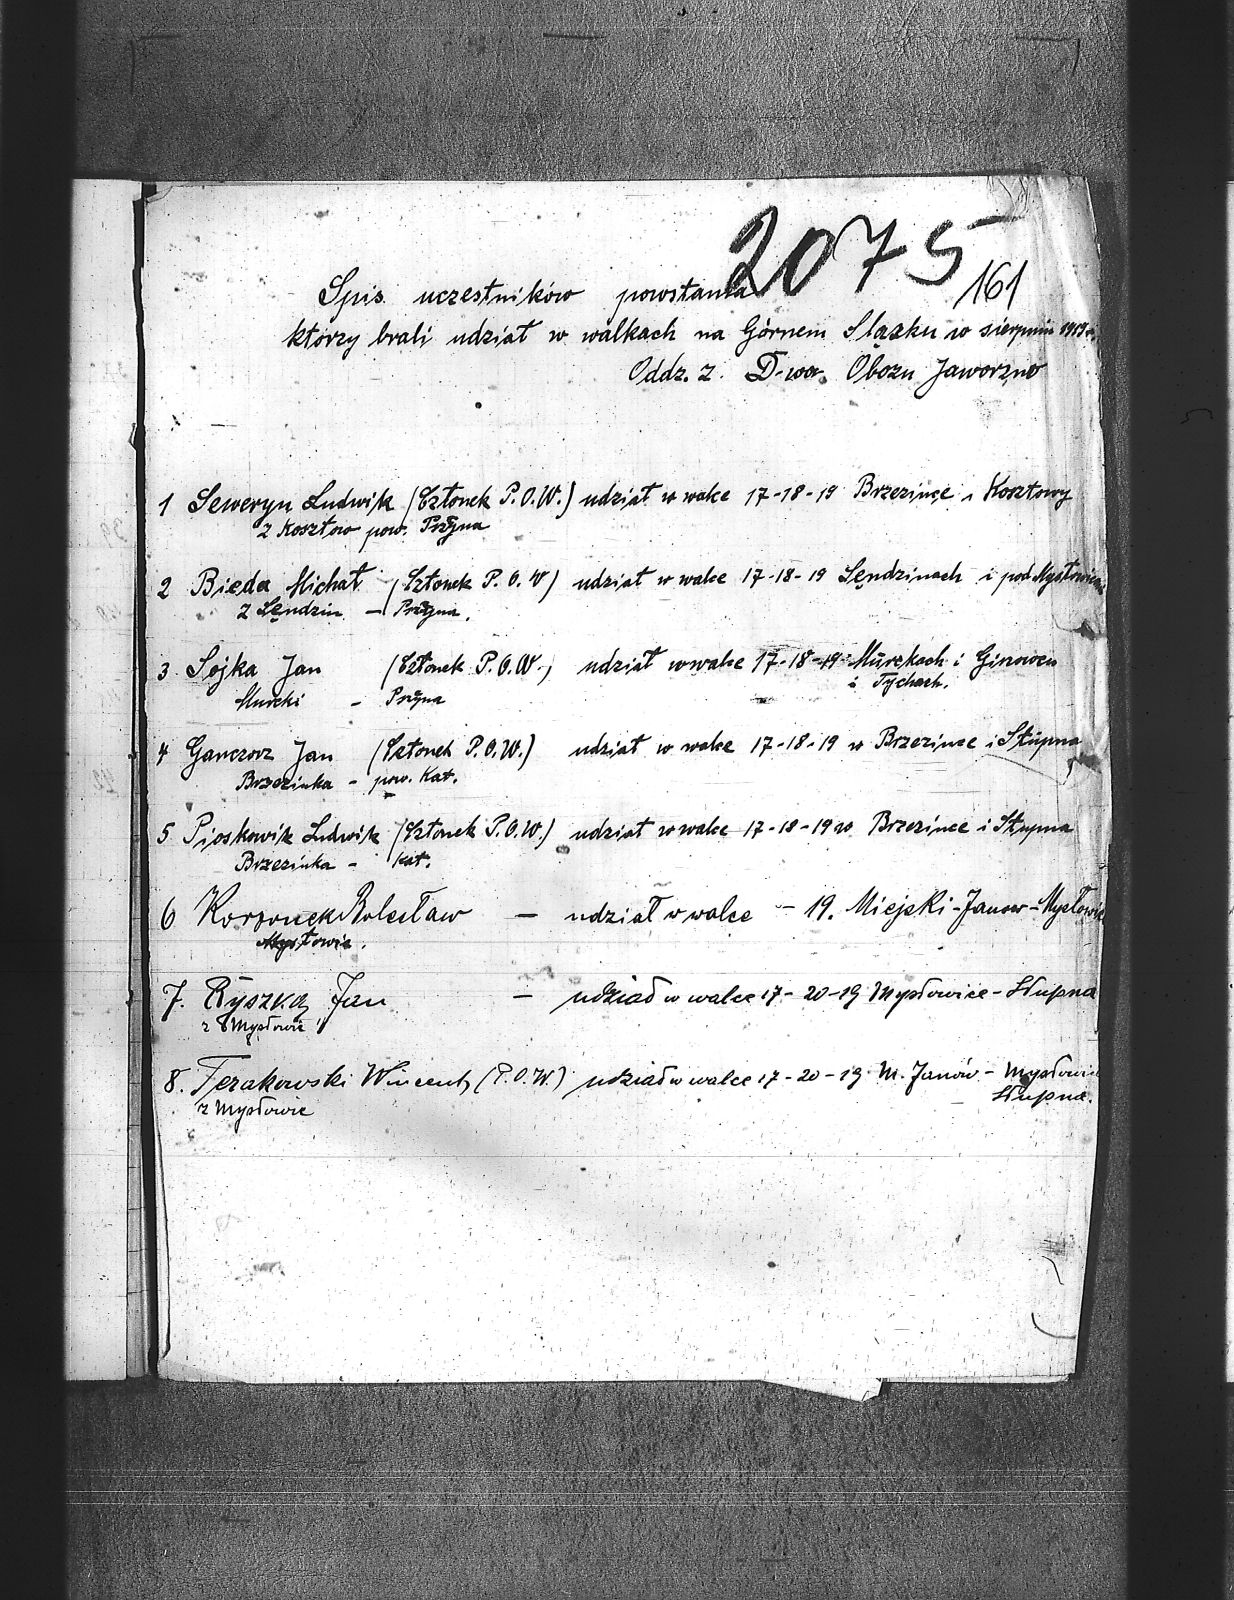 2075
161
Spis uczestników powstania
którzy brali udział w walkach na Górnem Slązku w sierpniu 1919 r.
Oddz. z. D-wa. Obozu Jaworzno
1 Seweryn Ludwik (Członek P.O.W.) udział w walce 17-18-19 Brzezince i Kosztowy
z Kosztow pow. Przyna
2 Bieda Michał (Członek P.O.W) udział w walce 17-18-19 Lędzinach i pod Mysłowicami
z Lendzin - Przyna.
3 Sojka Jan (Członek P.O.W.) udział w walce 17-18-19 Murckach i Giszowcu
i Tychach.
Murcki - Przyna
4 Ganczorz Jan (Członek P.O.W.) udział w walce 17-18-19 w Brzezince i Słupna
Brzezinka - pow. Kat.
5 Pioskowik Ludwik (Członek P.O.W.) udział w walce 17-18-19 w Brzezince i Słupna
Brzezinka - Kat.
6 Korzonek Bolesław - udział w walce - 19. Miejski-Janow-Mysłowic
Mysłowic.
7. Ryszka Jan - udział w walce 17-20-19 Mysłowice-Słupna
z Mysłowic
8. Terakowski Wincenty (P.O.W.) udział w walce 17-20-19 M. Janów - Mysłowic
Słupna.
z Mysłowic